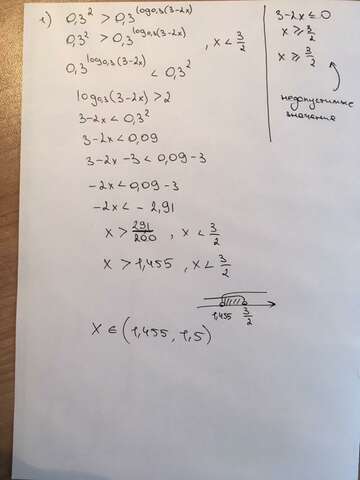 1) 0,3² > 0,3^(log₀,₃(3-2x))
0,3² > 0,3^(log₀,₃(3-2x)) , x < 3/2
0,3^(log₀,₃(3-2x)) < 0,3²
log₀,₃(3-2x) > 2
3-2x < 0,3²
3-2x < 0,09
3-2x -3 < 0,09-3
-2x < 0,09-3
-2x < - 2,91
x > 291/200 , x < 3/2
x > 1,455 , x < 3/2
1,455 3/2
x ∈ (1,455, 1,5)
3-2x ≤ 0
x ≥ 3/2
x ≥ 3/2
недопустимые
значения